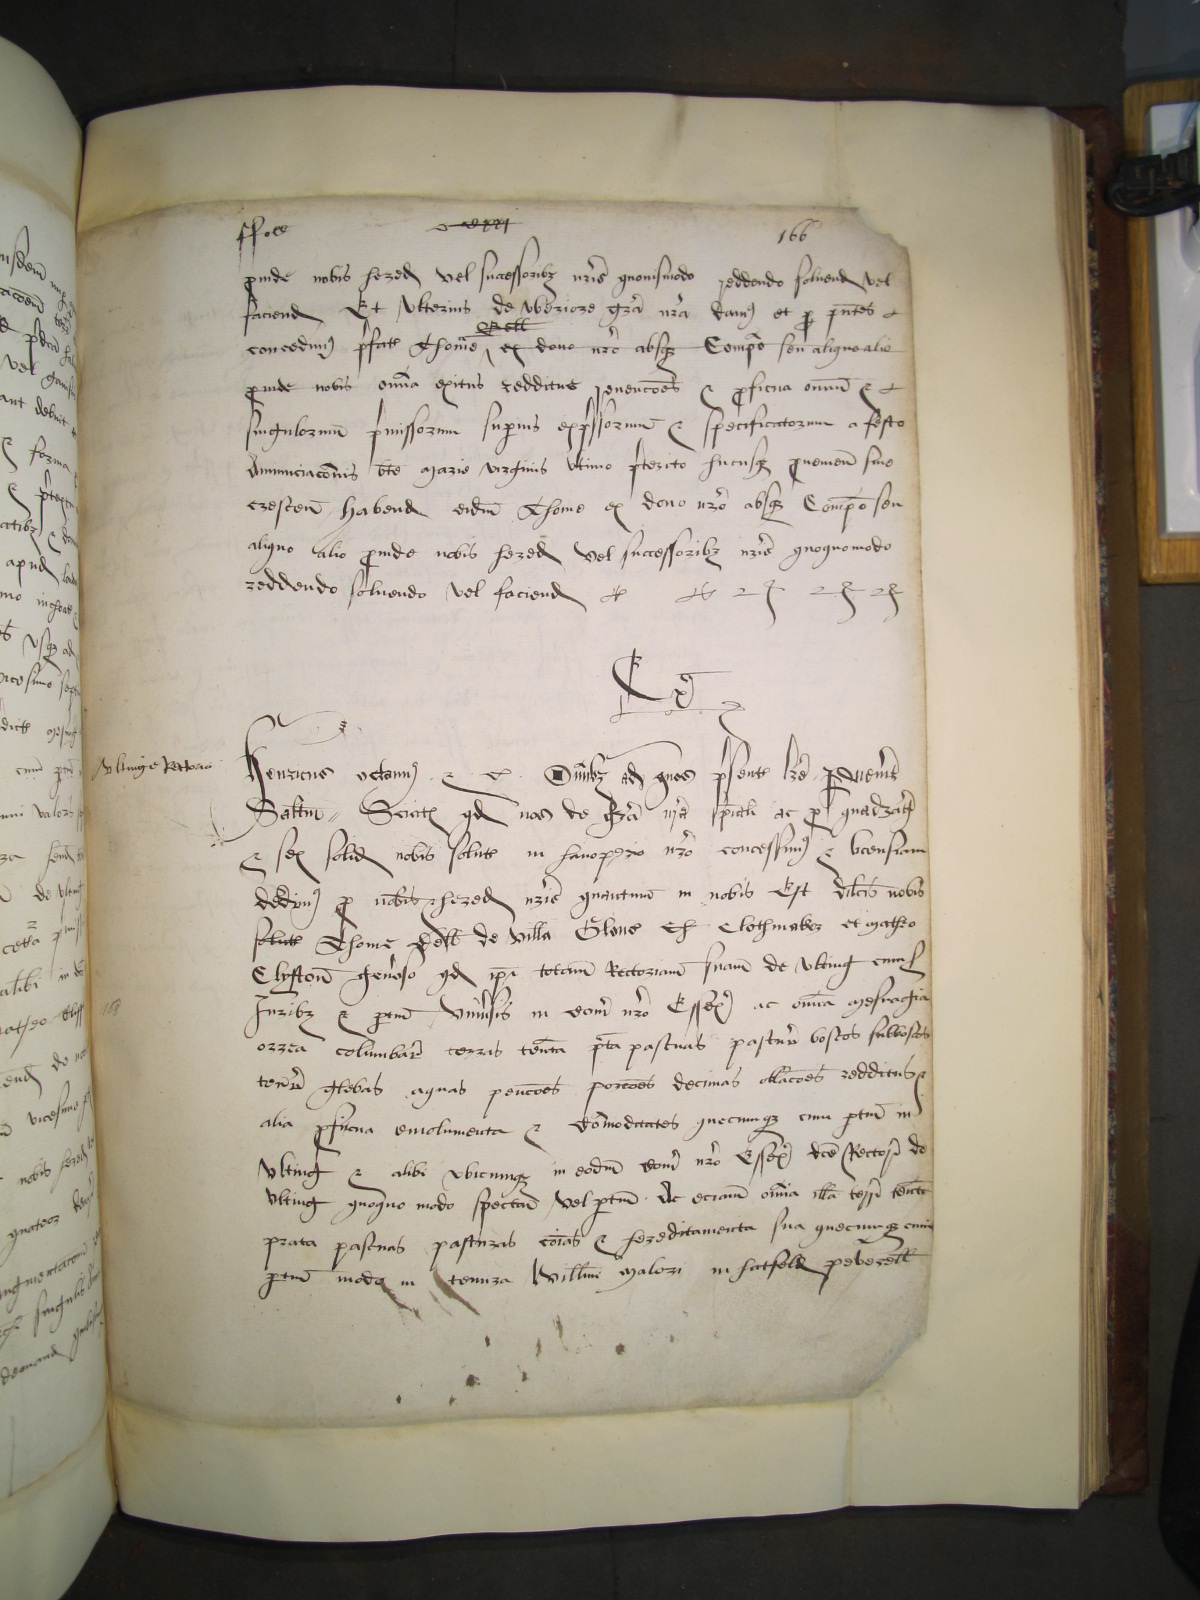 166
proinde nobis hered vel successoribz nr̃is quovismodo reddendo solvend vel
faciend Et ulterius de uberiore gr̃a nr̃a damus et p pñtes
concedimus p̃fat Thome ex dono nr̃o absqz Compõ seu aliquo alio
proinde nobis om̃ia exitus redditus revencões & proficua om̃iu &
singulorum p̃missorum superius exp̃ssorum & specificatorum a festo
Annunciacõnis bt̃e Marie virginis ultimo p̃terito hucusqz provenien sive
crescen Habend eidm Thome ex dono nr̃o absqz Compõ seu
aliquo alio proinde nobis hered vel successoribz nr̃is quoquomodo
reddendo solvendo vel faciend
Ultinge Rectoria
Henricus octavus & c Om̃ibz ad quos p̃sentes lr̃e pervenerint
Sal̃tm Sciatis qd nos de gr̃a nr̃a sp̃iali ac p
& sex solid nobis solut in hanaperio nr̃o concessimus & licenciam
dedimus p nobis & hered nr̃is quantum in nobis est dil̃cis nobis
Thome de villa Clothmaker et Matheo
Clyfton gen̓oso qd ip̃i totam Rectoriam suam de Ulting cum
Juribz & ptin univ̓sis in com̃ nr̃o Essex ac om̃ia mesuagia
orrea columbar̃ terras ten̓ta p̃ta pascuas pastur̃ boscos subboscos
glebas aquas pencões porcões decimas oblacões redditus &
alia proficua emolumenta & com̃oditates quecumqz cum ptin in
Ulting & alibi ubicumqz in eodm com̃ nr̃o Essex dc̃e Rectorie de
Ulting quoquo modo spectan vel ptin Ac eciam om̃ia illa terr̃ ten̓ta
prata pascuas pasturas com̃ias & hereditamenta sua quecumqz cum
ptin modo in tenura Will̃mi Malori in Hatfeld peverell